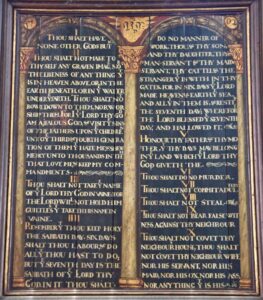 1592
THOU SHALT HAVE
NONE OTHER GODS BUT
THOU SHALT NOT MAKE TO
THYSELF ANY GRAVEN
LIKENESS OF ANY THING
IS IN HEAVEN ABOVE, OR IN THE
EARTH BENEATH, OR IN Y WATER
UNDER Y EARTH. THOU SHALT NO
BOWE DOWN TO THEM, NOR
SHIP THEM: FOR I Y LORD THY GOD
AM A IELOUS GOD,
OF THE FATHERS UPON Y CHILDRE
UNTO Y THIRD & FOURTH GENERA
TION OF THEM Y HATE ME & SHEW
MERCY UNTO THOUSANDS IN THE
THAT LOVE ME & KEEP MY COM
MANDMENTS
III
THOU SHALT NOT TAKE Y NAME
OF Y LORD THY GOD IN VAINE: FOR
THE LORD WIL NOT HOLD HIM
GUILTLES Y TAKETH HIS NAME IN
VAINE
IIII
REMEMBER Y THOU KEEP HOLY
THE SABBATH DAY. SIX DAYS
SHALT THOU LABOUR & DO
ALL Y THOU HAST TO DO,
BUT Y SEVENTH DAY IS THE
SABBATH OF Y LORD THY
GOD. IN IT THOU SHALT
DO NO MANNER OF
WORK, THOU & THY SON
AND THY DAUGHTER, THY
MAN SERVANT & THY MAID
SERVANT, THY CATTEL & THE
STRANGER Y IS WITH IN THY
GATES: FOR IN SIX DAYS Y LORD
MADE HEAVEN & EARTH Y SEA,
AND ALL Y IN THEM IS, & REST
THE SEVENTH DAY, WHERFORE
THE LORD BLESSED Y SEVENTH
DAY, AND HALLOWED IT
V
HONOUR THY FATHER & THY MO
THER, Y THY DAYS MAY BE LONG
IN Y LAND WHICH Y LORD THY
GOD GIVETH THE
VI
THOU SHALT DO NO MURDER
VII
THOU SHALT NOT COMMIT ADUL
VIII
THOU SHALT NOT STEAL
IX
THOU SHALT NOT BEAR FALSE WIT
NESS AGAINST THY NEIGHBOUR
X
THOU SHALT NOT COVET THY
NEIGHBOUR HOUSE, THOU SHALT
NOT COVET THY NEIGHBOUR WIFE,
NOR HIS SERVANT, NOR HIS
MAID, NOR HIS OX, NOR HIS ASS
NOR ANY THING Y IS HIS